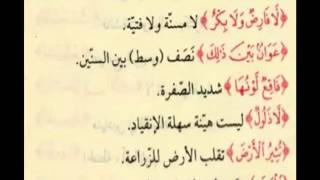 ﴿لَّا فَارِضٌ وَلَا بِكْرٌ﴾ لا مسنّة ولا فتيّة.
﴿عَوَانٌ بَيْنَ ذَٰلِكَ﴾ نَصَف (وسط) بين السنّين.
﴿فَاقِعٌ لَّوْنُهَا﴾ شديد الصّفرة.
﴿لَّا ذَلُولٌ﴾ ليست هيّنة سهلة الإنقياد.
﴿تُثِيرُ الْأَرْضَ﴾ تقلب الأرض للزّراعة.